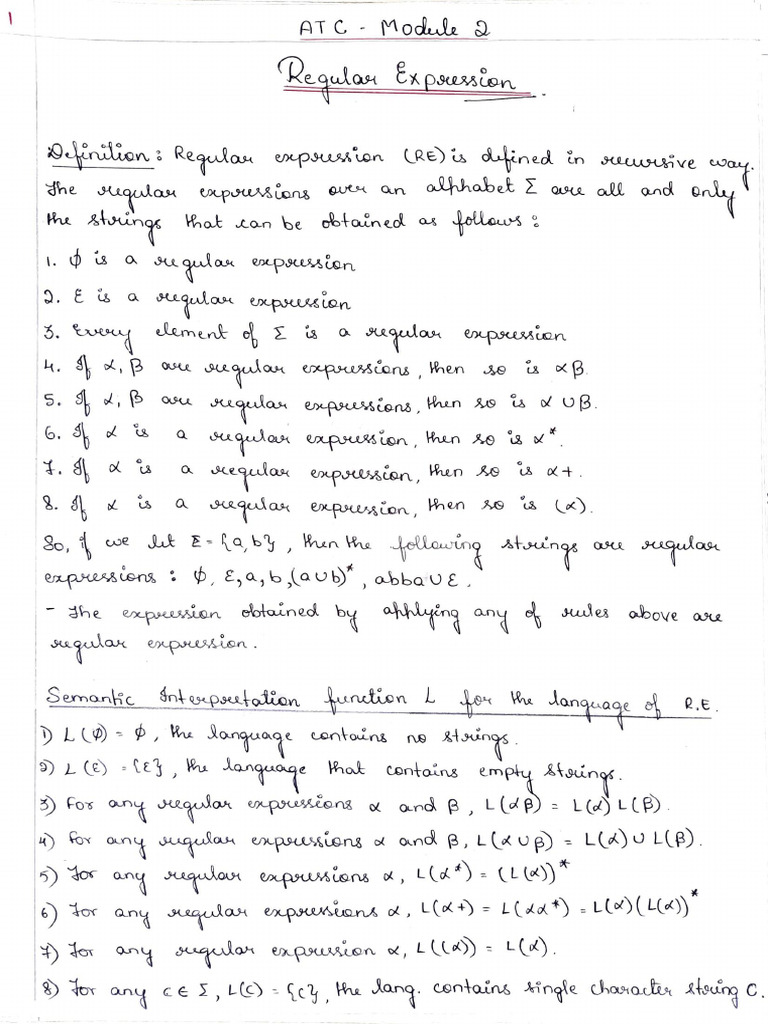 1
ATC - Module 2
Regular Expression.
Definition: Regular expression (RE) is defined in recursive way.
The regular expressions over an alphabet Σ are all and only
the strings that can be obtained as follows:
1. Φ is a regular expression
2. ε is a regular expression
3. Every element of Σ is a regular expression
4. If α, β are regular expressions, then so is αβ.
5. If α, β are regular expressions, then so is α ∪ β.
6. If α is a regular expression, then so is α*.
7. If α is a regular expression, then so is α+.
8. If α is a regular expression, then so is (α).
So, if we let Σ = {a, b}, then the following strings are regular
expressions: Φ, ε, a, b, (a∪b)*, abba∪ε.
- The expression obtained by applying any of rules above are
regular expression.
Semantic Interpretation function L for the language of R.E.
1) L(Φ) = Φ, the language contains no strings.
2) L(ε) = {ε}, the language that contains empty strings.
3) For any regular expressions α and β, L(αβ) = L(α) L(β).
4) For any regular expressions α and β, L(α ∪ β) = L(α) ∪ L(β).
5) For any regular expressions α, L(α*) = (L(α))*
6) For any regular expressions α, L(α+) = L(αα*) = L(α)(L(α))*
7) For any regular expression α, L((α)) = L(α).
8) For any c ∈ Σ, L(c) = {c}, the lang. contains single character string C.